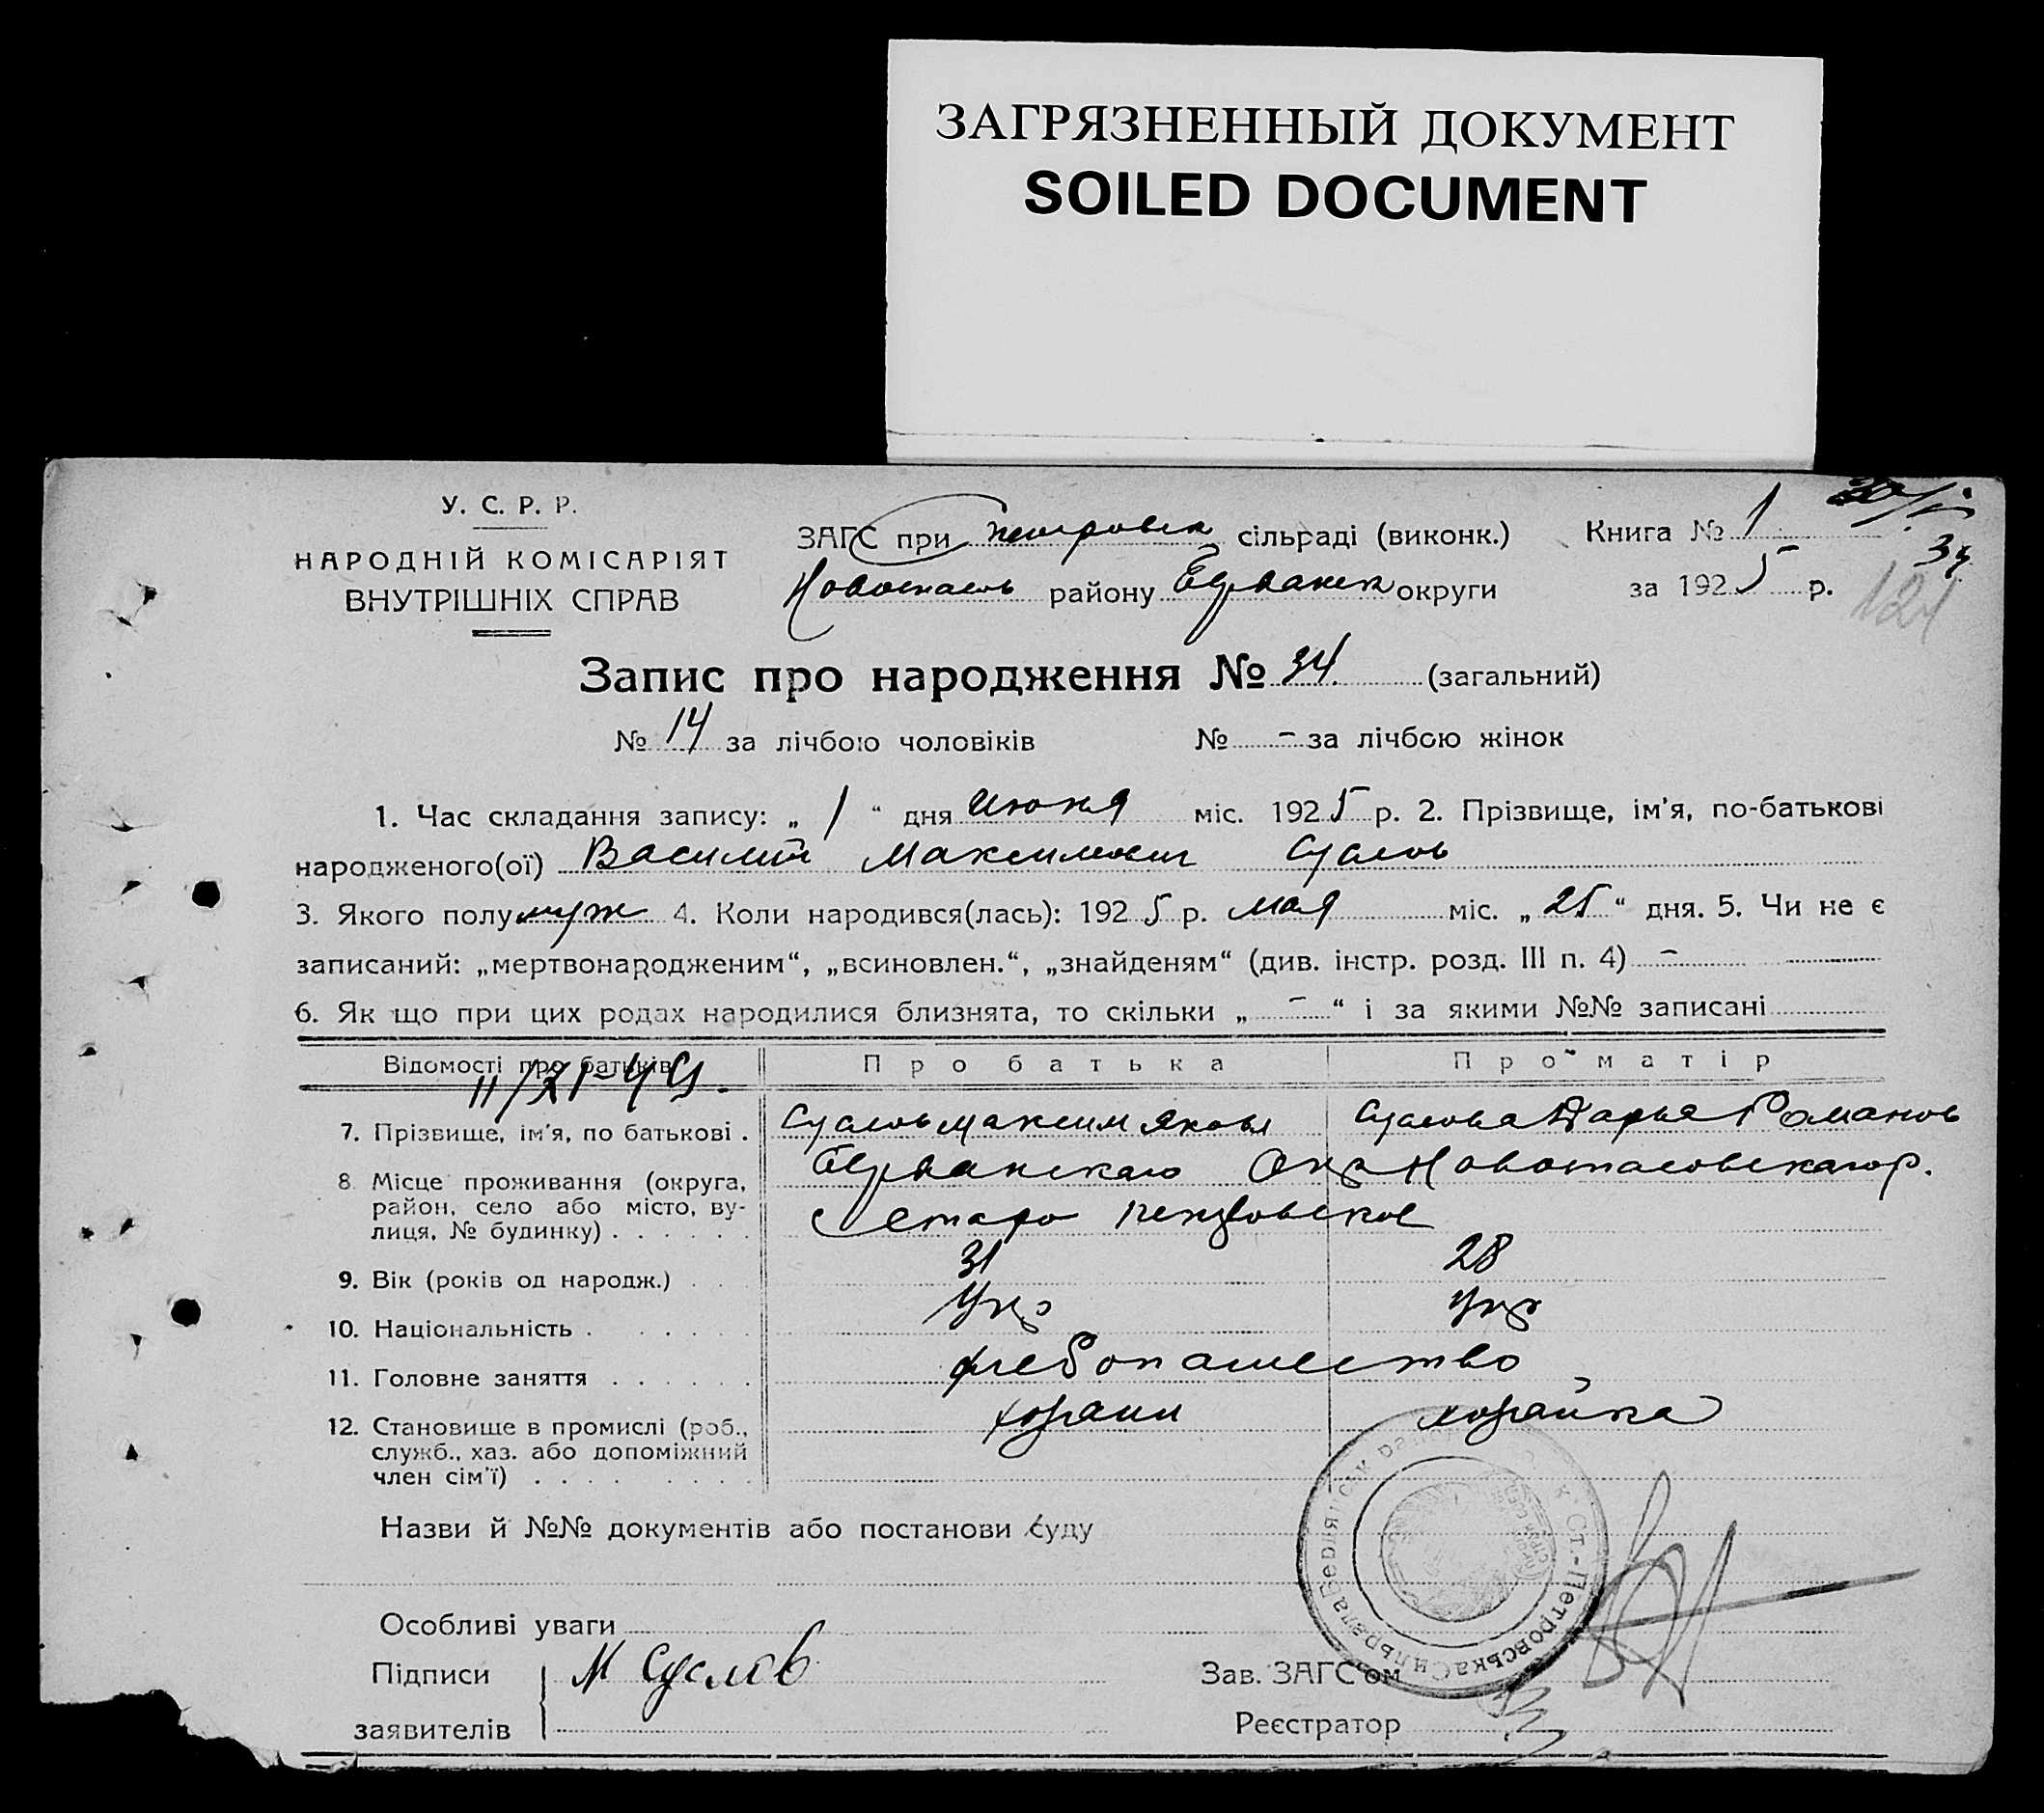 ЗАГРЯЗНЕННЫЙ ДОКУМЕНТ
SOILED DOCUMENT
У. С. Р. Р.
НАРОДНІЙ КОМІСАРІЯТ
ВНУТРІШНІХ СПРАВ
ЗАГС при Петровск сільраді (виконк.)
Книга № 1
34
Новоспасов району Бердянск округи
за 1925 р.
121
Запис про народження № 34. (загальний)
№ 14 за лічбою чоловіків № - за лічбою жінок
1. Час складання запису: „ 1 “ дня Июня міс. 1925 р. 2. Прізвище, ім'я, по-батькові
народженого(ої) Василий Максимович Суслов
3. Якого полу муж 4. Коли народився(лась): 1925 р. мая міс. „ 25 “ дня. 5. Чи не є
записаний: „мертвонародженим“, „всиновлен.“, „знайденям“ (див. інстр. розд. III п. 4) -
6. Як що при цих родах народилися близнята, то скільки „ - “ і за якими №№ записані
Відомості про батьків Про батька Про матір
7. Прізвище, ім'я, по батькові . Суслов Максим Яковл Суслова Дарья Романов
8. Місце проживання (округа, Бердянскаго Окр Новоспасовскаго р.
район, село або місто, ву-
лиця, № будинку) . . . . . . с Старо Петровское
9. Вік (років од народж.) . . 31 28
10. Національність . . . . . . Укр Укр
11. Головне заняття . . . . . . хлебопашество
12. Становище в промислі (роб., хозяин хозяйка
служб., хаз. або допоміжний
член сім'ї) . . . . . . .
Назви й №№ документів або постанови суду
Особливі уваги
Підписи М Суслов
заявителів
Зав. ЗАГС'ом
Реєстратор
Ст.-Петровська Сильрада Бердянськ